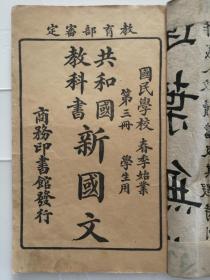 教育部審定
國民學校 春季始業
第三冊 學生用
共和國
教科書
新國文
商務印書館發行
無